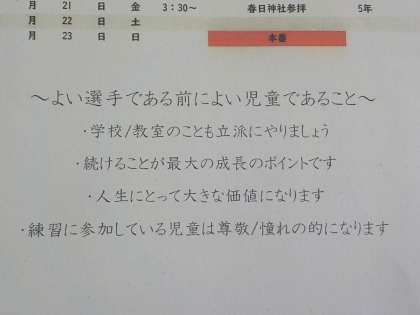 月 21 日 金 3:30～ 春日神社参拝 5年
月 22 日 土
月 23 日 日 本番
～よい選手である前によい児童であること～
・学校/教室のことも立派にやりましょう
・続けることが最大の成長のポイントです
・人生にとって大きな価値になります
・練習に参加している児童は尊敬/憧れの的になります